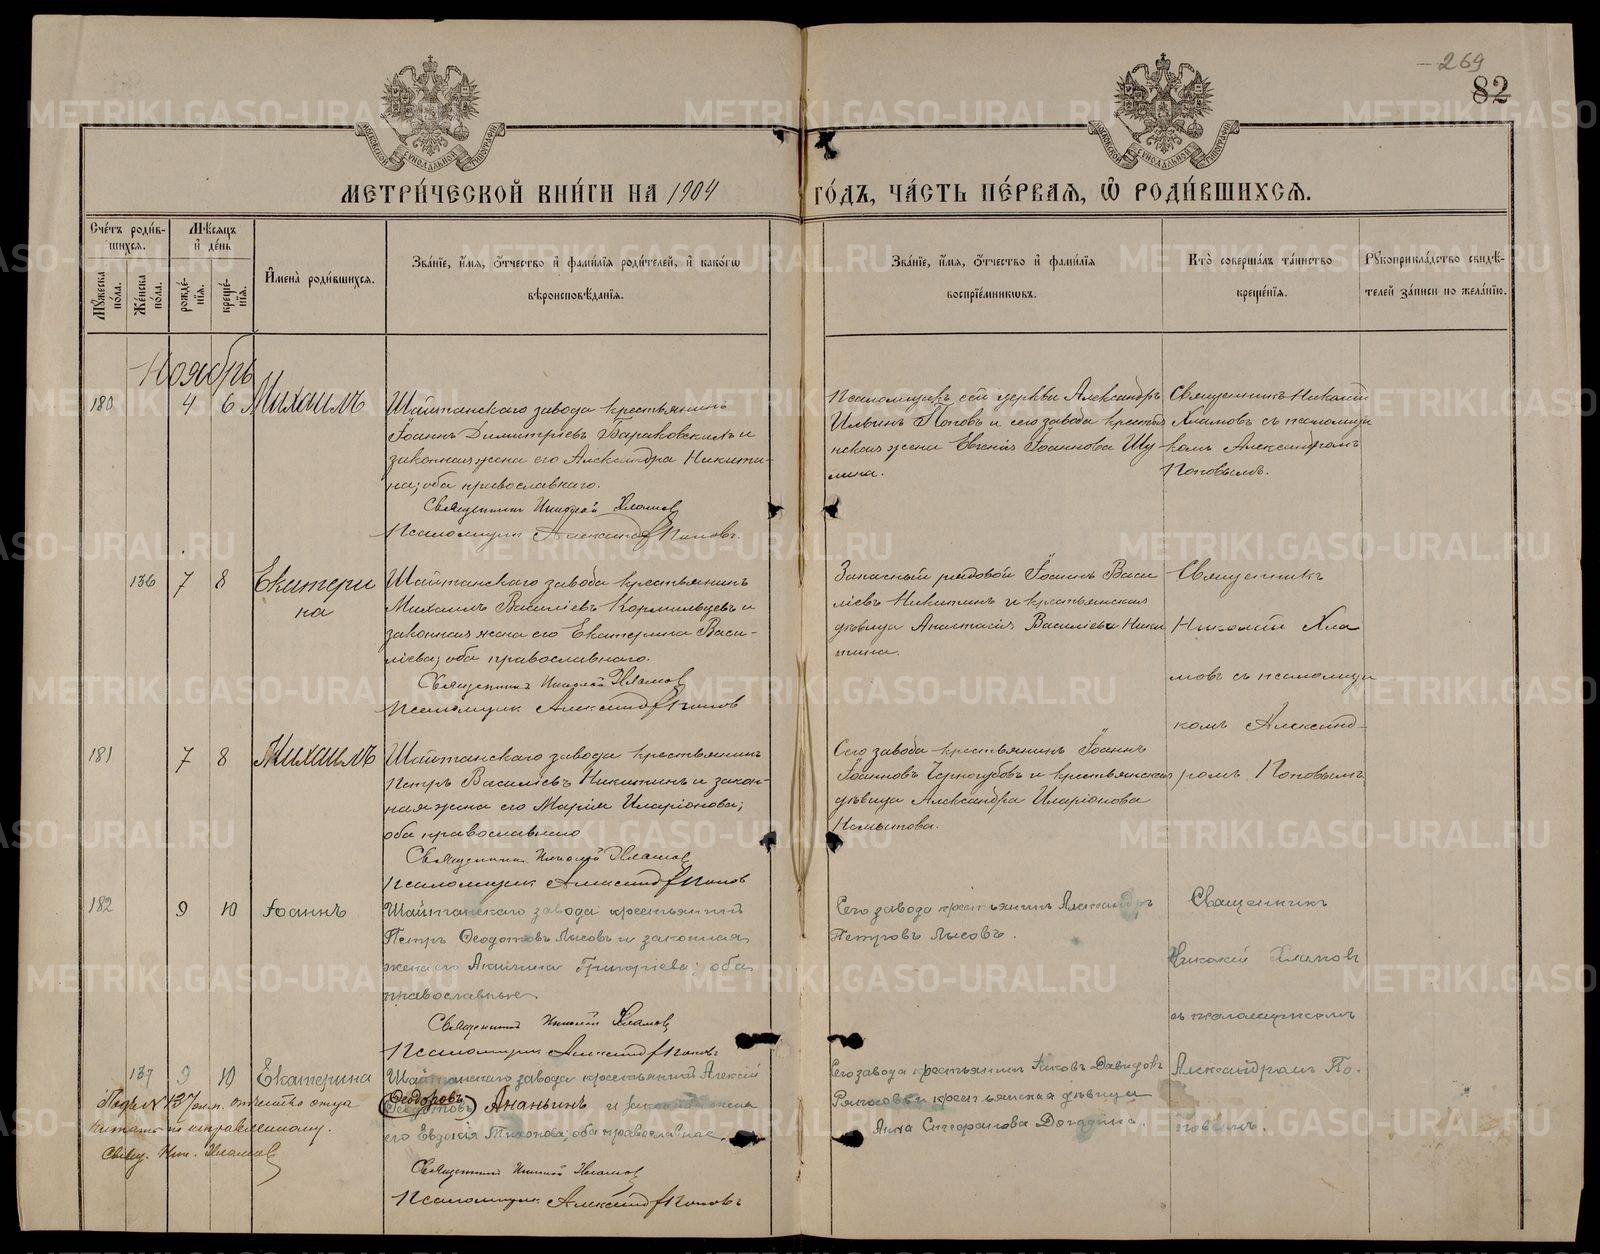 269
82
МОСКОВСКОЙ СѴНОДАЛЬНОЙ ТИПОГРАФІИ
МОСКОВСКОЙ СѴНОДАЛЬНОЙ ТИПОГРАФІИ
МЕТРИ́ЧЕСКОЙ КНИ́ГИ НА 1904 ГО́ДЪ, ЧА́СТЬ ПЕ́РВАЯ, Ѽ РОДИ́ВШИХСЯ.
Сче́тъ роди́в-
шихся.
Мѣсяцъ
и де́нь
Мꙋжеска по́ла.
Же́нска по́ла.
рожде́-
нїя.
креще́-
нїя.
Имена̀ роди́вшихся.
Зва́нїе, и́мя, ѻ́тчество и фами́лїя роди́телей, и како́гѡ
вѣроисповѣ́данїя.
Зва́нїе, и́мя, ѻ́тчество и фами́лїя
воспрїе́мникѡвъ.
Кто̀ соверша́лъ та́инство
креще́нїя.
Рꙋкоприкла́дство свидѣ́-
телей за́писи по жела́нїю.
Ноябрь
180 4 6 Михаилъ
Шайтанскаго завода крестьянинъ
Іоаннъ Димитріевъ и
законная жена его Александра Никити-
на; оба православнаго.
Священник Николай Хламов
Псаломщик Александр Попов
Псаломщикъ сей церкви Александръ
Ильинъ Поповъ и сего завода крестья
нская жена Евгенія Іоаннова Шу-
лина.
Священникъ Николай
Хламовъ съ псаломщи
комъ Александромъ
Поповымъ.
136 7 8 Екатери
на
Шайтанскаго завода крестьянинъ
Михаилъ Василіевъ Кормильцевъ и
законная жена его Екатерина Васи-
ліева; оба православнаго.
Священник Николай Хламов
Псаломщик Александр Попов
Запасный рядовой Іоаннъ Васи
ліевъ Никитинъ и крестьянская
дѣвица Анастасія Василіева Ники
тина.
Священникъ
Николай Хла
мовъ съ псаломщи
комъ Александ-
ромъ Поповымъ
181 7 8 Михаилъ
Шайтанскаго завода крестьянинъ
Петръ Василіевъ Никитинъ и закон-
ная жена его Марія Иларіонова;
оба православнаго
Священник Николай Хламов
Псаломщик Александр Попов
Сего завода крестьянинъ Іоаннъ
Іоанновъ Черногубовъ и крестьянская
дѣвица Александра Иларіонова
182 9 10 Іоаннъ
Шайтанскаго завода крестьянинъ
Петръ Ѳеодотовъ Лысовъ и законная
жена его Акилина Григоріева; оба
православные.
Священник Николай Хламов
Псаломщик Александр Попов
Сего завода крестьянинъ Александръ
Петровъ Лысовъ.
Священникъ
Николай Хламовъ
съ псаломщикомъ
Александромъ По-
повымъ.
137 9 10 Екатерина
Шайтанскаго завода крестьянинъ Алексій
Ѳеодоровъ
(Ѳеодотовъ) Ананьинъ и законная жена
его Евдокія Тихонова; оба православные.
Священник Николай Хламов
Псаломщик Александр Поповъ
Сего завода крестьянинъ Іаковъ Давидовъ
и крестьянская дѣвица
Анна Стефанова
№ 137 отчество отца
читать по исправленному.
Свящ. Ник. Хламов
METRIKI.GASO-URAL.RU